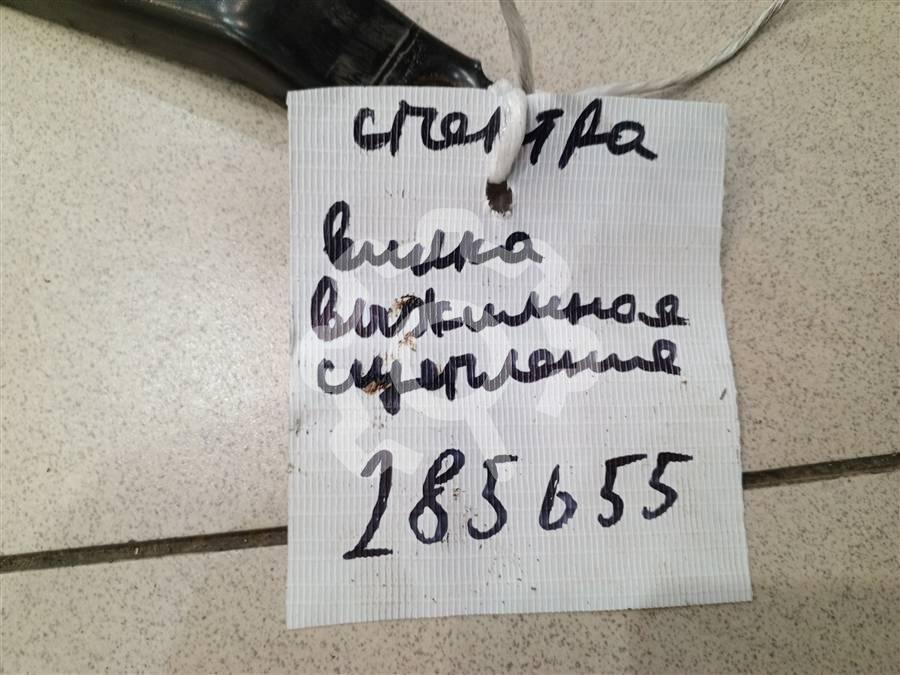 спектра
вилка
выжимная
сцепление
285655